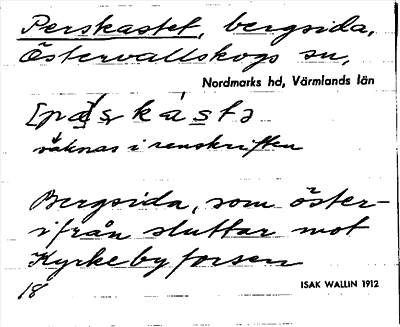 Perskastet, bergsida,
Östervallskogs sn,
Nordmarks hd, Värmlands län
saknas i renskriften
Bergsida, som öster-
ifrån sluttar mot
Kyrkebyforsen
18
ISAK WALLIN 1912